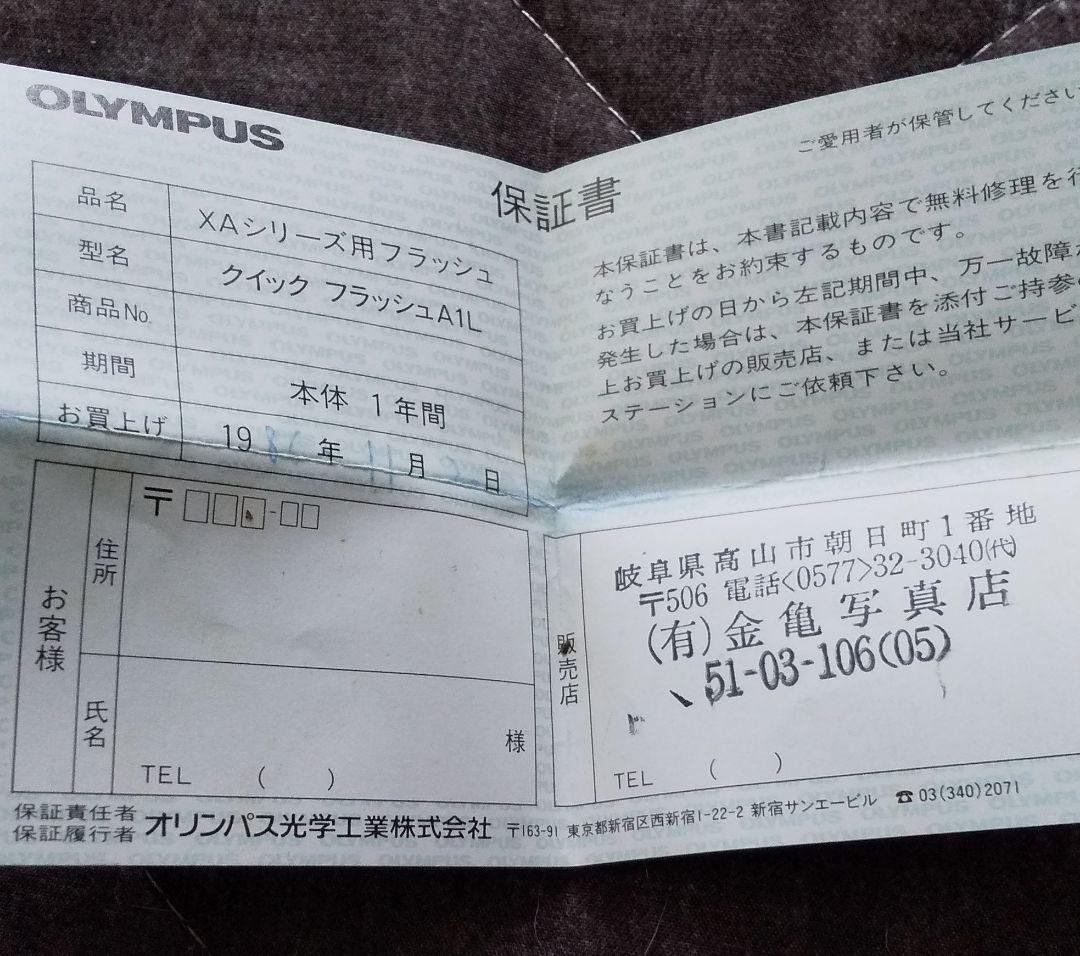 OLYMPUS
保証書
ご愛用者が保管してください
品名 XAシリーズ用フラッシュ
型名 クイック フラッシュA1L
商品No.
期間 本体 1年間
お買上げ 198 年 11 月 日
本保証書は、本書記載内容で無料修理を行
なうことをお約束するものです。
お買上げの日から左記期間中、万一故障が
発生した場合は、本保証書を添付ご持参の
上お買上げの販売店、または当社サービ
ステーションにご依頼下さい。
お客様
住所
〒 -
氏名
様
TEL ( )
販売店
岐阜県高山市朝日町1番地
〒506 電話<0577>32-3040(代)
(有)金亀写真店
51-03-106(05)
TEL ( )
保証責任者
保証履行者
オリンパス光学工業株式会社 〒163-91 東京都新宿区西新宿1-22-2 新宿サンエービル ☎03(340)2071